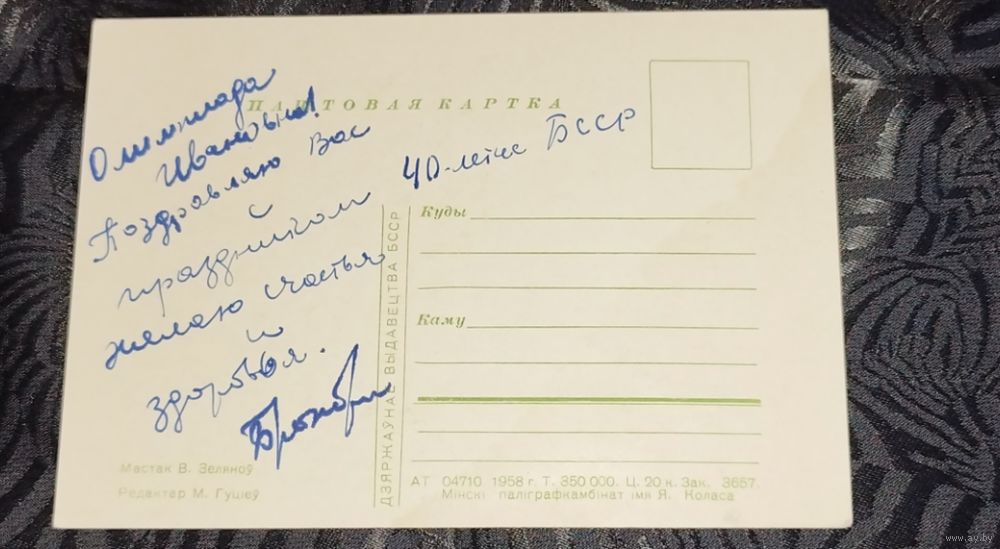 ПАШТОВАЯ КАРТКА
Олимпиада
Ивановна!
Поздравляю Вас
с
праздником 40-летие БССР
желаю счастья
и
здоровья.
Куды
Каму
ДЗЯРЖАЎНАЕ ВЫДАВЕЦТВА БССР
Мастак В. Зеляноў
Рэдактар М. Гушеў
АТ 04710 1958 г. Т. 350 000. Ц. 20 к. Зак. 3657.
Мінскі паліграфкамбінат імя Я. Коласа
www.ay.by